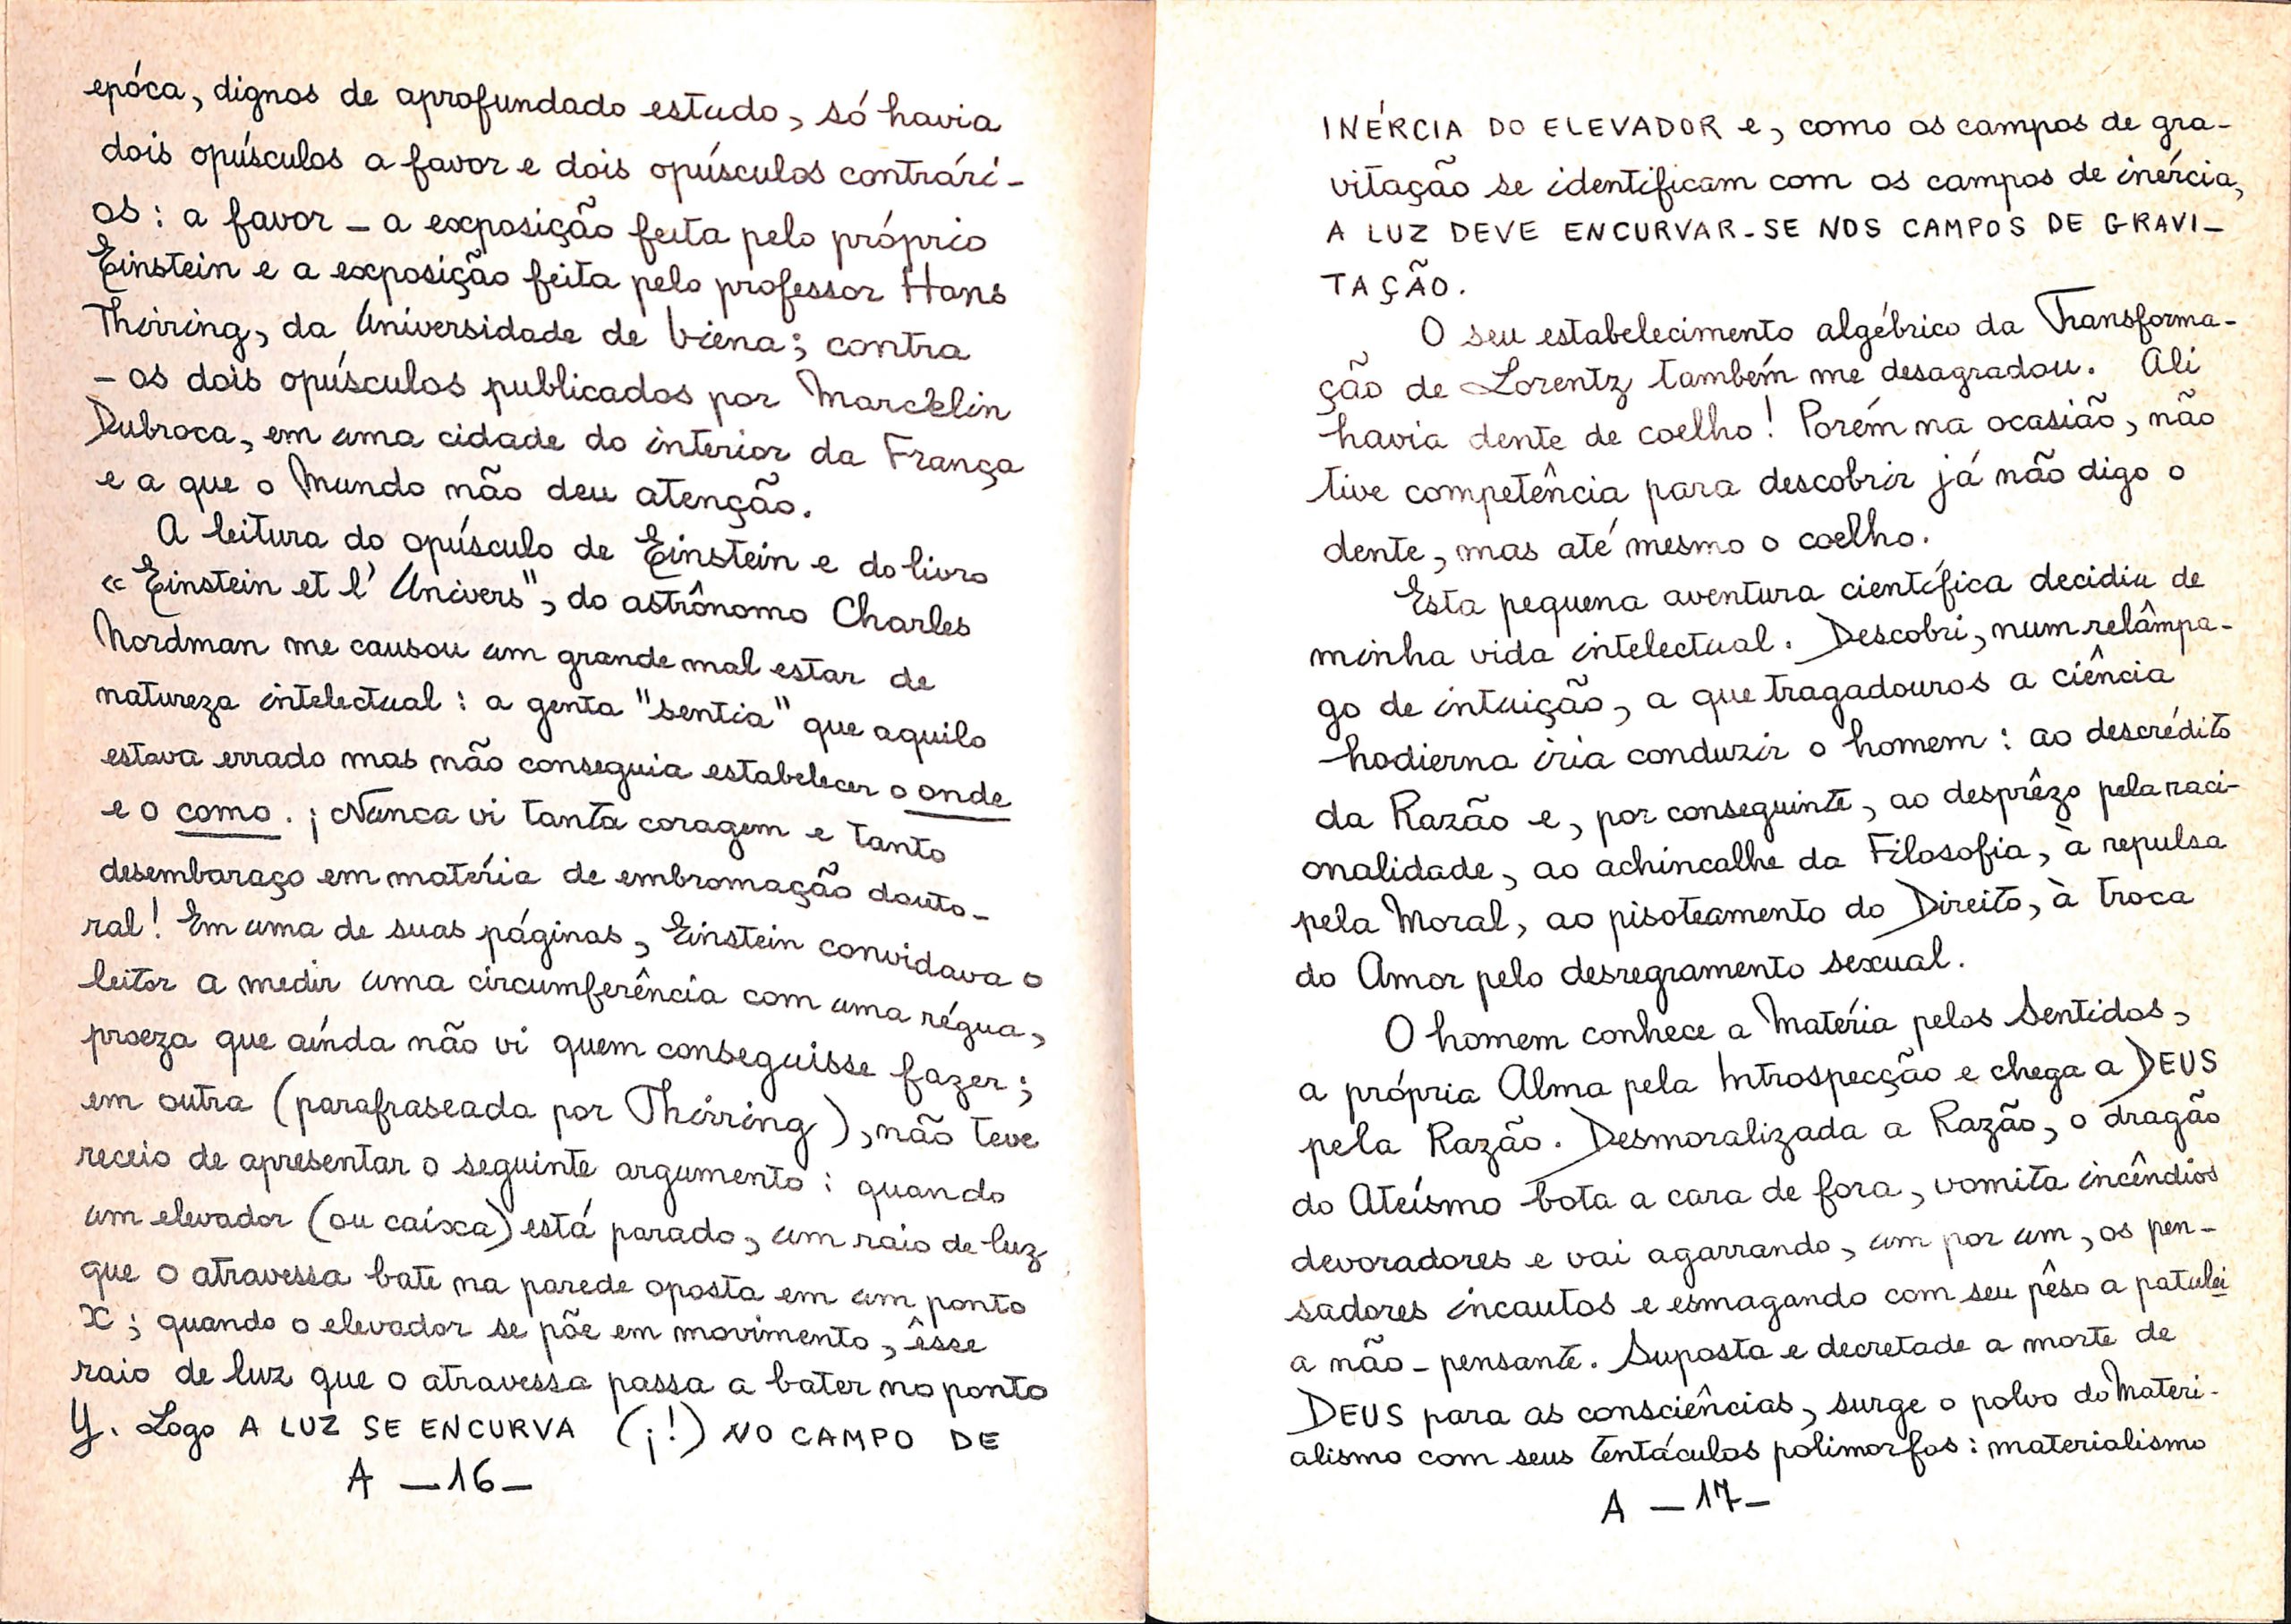 epóca, dignos de aprofundado estudo, só havia
dois opúsculos a favor e dois opúsculos contrári-
os: a favor - a exposição feita pelo próprio
Einstein e a exposição feita pelo professor Hans
Thirring, da Universidade de Viena; contra
- os dois opúsculos publicados por Marcelin
Dubroca, em uma cidade do interior da França
e a que o Mundo não deu atenção.
A leitura do opúsculo de Einstein e do livro
«Einstein et l'Univers", do astrônomo Charles
Nordman me causou um grande mal estar de
natureza intelectual: a genta "sentia" que aquilo
estava errado mas não conseguia estabelecer o onde
e o como. ¡Nunca vi tanta coragem e tanto
desembaraço em matéria de embromação douto-
ral! Em uma de suas páginas, Einstein convidava o
leitor a medir uma circumferência com uma régua,
proeza que aínda não vi quem conseguisse fazer;
em outra (parafraseada por Thirring), não teve
receio de apresentar o seguinte argumento: quando
um elevador (ou caíxa) está parado, um raio de luz
que o atravessa bate na parede oposta em um ponto
X; quando o elevador se põe em movimento, êsse
raio de luz que o atravessa passa a bater no ponto
Y. Logo A LUZ SE ENCURVA (¡!) NO CAMPO DE
A -16-
INÉRCIA DO ELEVADOR e, como os campos de gra-
vitação se identificam com os campos de inércia,
A LUZ DEVE ENCURVAR-SE NOS CAMPOS DE GRAVI-
TAÇÃO.
O seu estabelecimento algébrico da Transforma-
ção de Lorentz também me desagradou. Ali
havia dente de coelho! Porém na ocasião, não
tive competência para descobrir já não digo o
dente, mas até mesmo o coelho.
Esta pequena aventura científica decidiu de
minha vida intelectual. Descobri, num relâmpa-
go de intuição, a que tragadouros a ciência
hodierna iria conduzir o homem: ao descrédito
da Razão e, por conseguinte, ao desprêzo pela raci-
onalidade, ao achincalhe da Filosofia, à repulsa
pela Moral, ao pisoteamento do Direito, à troca
do Amor pelo desregramento sexual.
O homem conhece a Matéria pelos Sentidos,
a própria Alma pela Introspecção e chega a DEUS
pela Razão. Desmoralizada a Razão, o dragão
do Ateísmo bota a cara de fora, vomita incêndios
devoradores e vai agarrando, um por um, os pen-
sadores incautos e esmagando com seu pêso a patulei
a não-pensante. Suposta e decretade a morte de
DEUS para as consciências, surge o polvo do Materi-
alismo com seus tentáculos polimorfos: materialismo
A -17-